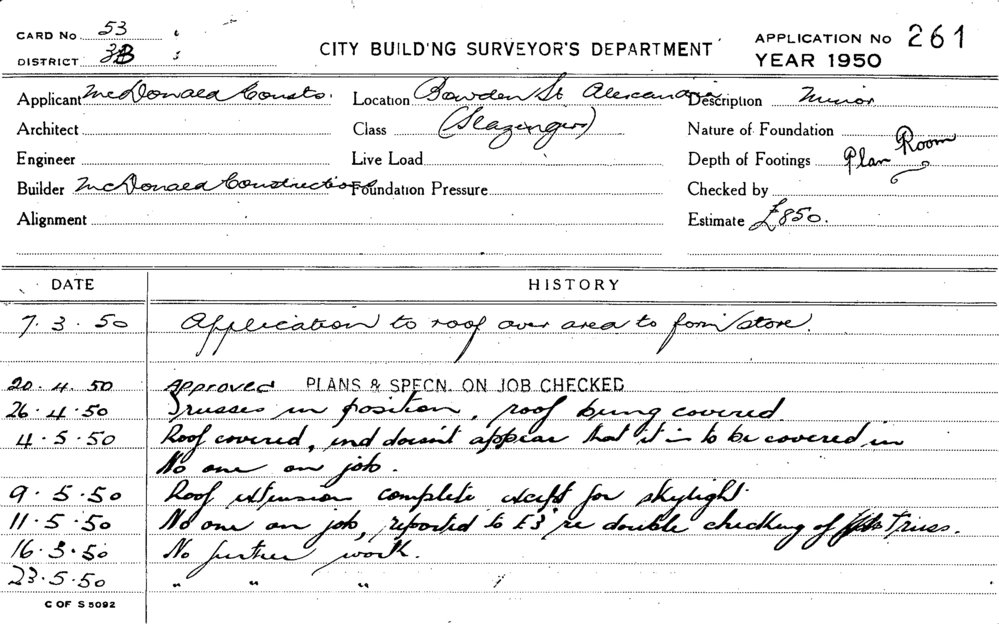 CARD No 53
DISTRICT 3B
CITY BUILD'NG SURVEYOR'S DEPARTMENT
APPLICATION No 261
YEAR 1950
Applicant McDonald Consto. Location Bowden St Alexandria Description Minor
Architect Class (Slazengers) Nature of Foundation
Engineer Live Load Depth of Footings Plan Room
Builder McDonald Constructions Foundation Pressure Checked by
Alignment Estimate £850.
DATE HISTORY
7.3.50 Application to roof over area to form store.
20.4.50 Approved PLANS & SPECN. ON JOB CHECKED
26.4.50 Trusses in position, roof being covered
4.5.50 Roof covered, end doesn't appear that it is to be covered in
No one on job.
9.5.50 Roof extension complete except for skylight.
11.5.50 No one on job, reported to E3 re double checking of Truss.
16.5.50 No further work.
23.5.50 " " "
C OF S 5092